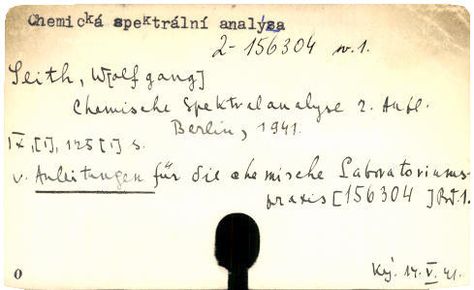 Chemická spektrální analýza
2-156304 w.1.
Seith, W[olfgang]
Chemische Spektralanalyse 2. Aufl.
Berlin, 1941.
IX, [I], 125 [1] s.
v. Anleitungen für die chemische Laboratoriums-
praxis [156304] Bd.1.
0
Ký. 14. V. 41.